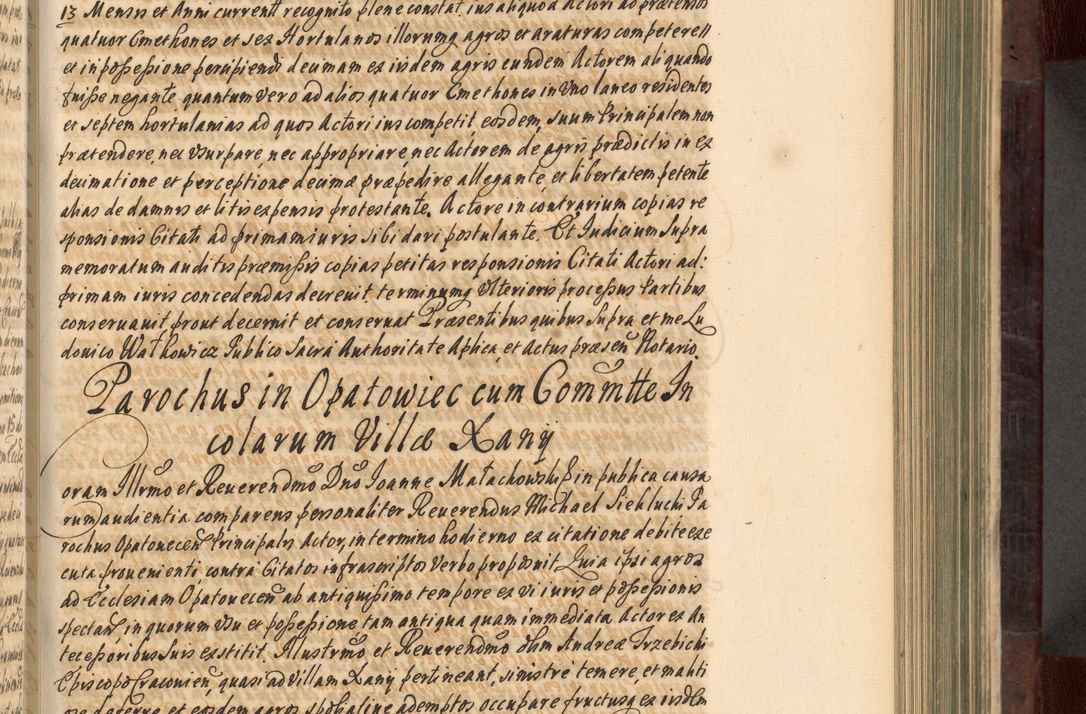 13 Mensis et Anni current recognito plene constat. ius aliquod Actori ad prætensos
quatuor Cmethones et sex Hortulanos illorumq agros et araturas competerell
et in possessione percipiendi decimam ex iisdem agris eundem Actorem aliquando
fuisse negante quantum vero ad alios quatuor Cmethones in Vno laneo residentes
et septem hortulanias ad quos Actori ius competit eosdem, suum Principalem non
prætendere, nec Vsurpare, nec appropriare, nec Actorem de agris prædictis in ex
decimatione et perceptione decimæ præpedire allegante, et libertatem petente
alias de damnis et litis expensis protestante. Actore in contrarium copias re
sponsionis Citati ad primam iuris sibi dari postulante. Et Iudicium Supra
memoratum auditis præmissis copias petitas responsionis Citati Actori ad:
primam iuris concedendas decreuit terminumq Vlterioris processus Partibus
conseruauit prout decernit et conseruat Præsentibus quibus Supra et me Lu
douico Watkowicz Publico Sacra Authoritate Aplica, et Actus præsen Notario
Parochus in Opatowiec cum Committe In
colarum Villæ Xany
oram Illrmo et Reuerendmo Dno Ioanne Małachowski in publica causa
rum audientia comparens personaliter Reuerendus Michael Siekluchi Pa
rochus Opatouecen Principalis Actor, in termino hodierno ex citatione debite exe
cuta prouenienti contra Citatos infrascriptos Verbo proposuit. Quia ipsi agros
ad Ecclesiam Opatouecen ab antiquissimo tempore ex vi iuris et possessionis
spectan in quorum Vsu et possessione, tam antiqua quam immediata Actor ex An
tecessoribus Suis exstitit. Illustrmo et Reuerendmo olim Andreæ Trzebichi
Episcopo Cracouien, quasi ad Villam Xany pertineant, sinistre temere, et mahti
ose deferre et eosdem agros spoliatine ademptos occupare fructusq ex iisdem